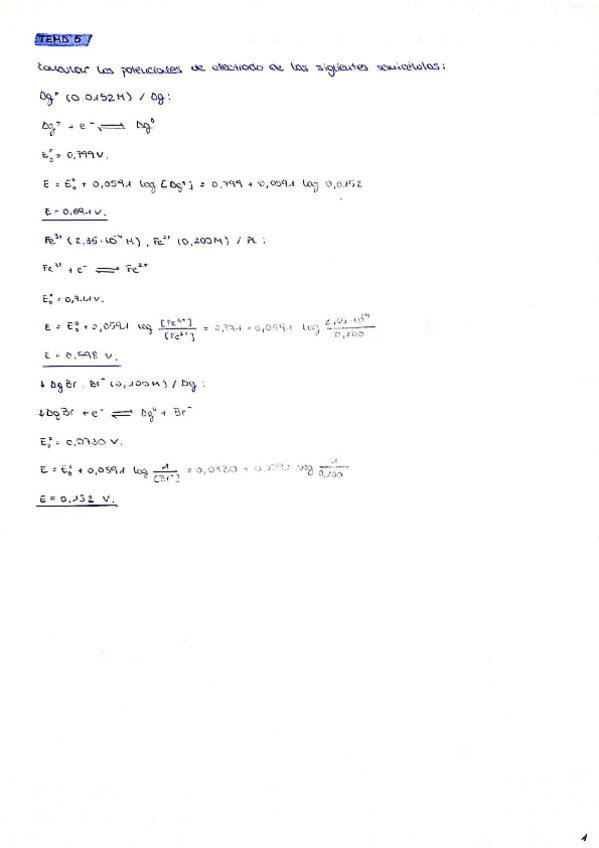 TEMA 5
Calcular los potenciales de electrodo de las siguientes semicélulas:
Ag⁺ (0.0152M) / Ag:
Ag⁺ + e⁻ ⇌ Ag⁰
E₀° = 0,799V.
E = E₀° + 0,0591 log [Ag⁺] = 0,799 + 0,0591 log 0,0152
E = 0,691 V.
Fe³⁺ (2,35·10⁻⁴ M), Fe²⁺ (0,200M) / Pt:
Fe³⁺ + e⁻ ⇌ Fe²⁺
E₀° = 0,771V.
E = E₀° + 0,0591 log [Fe³⁺]/[Fe²⁺] = 0,771 + 0,0591 log 2,35·10⁻⁴/0,200
E = 0,598 V.
↓AgBr, Br⁻ (0,100M) / Ag:
↓AgBr + e⁻ ⇌ Ag⁰ + Br⁻
E₀° = 0,0730 V.
E = E₀° + 0,0591 log 1/[Br⁻] = 0,0730 + 0,0591 log 1/0,100
E = 0,132 V.
1